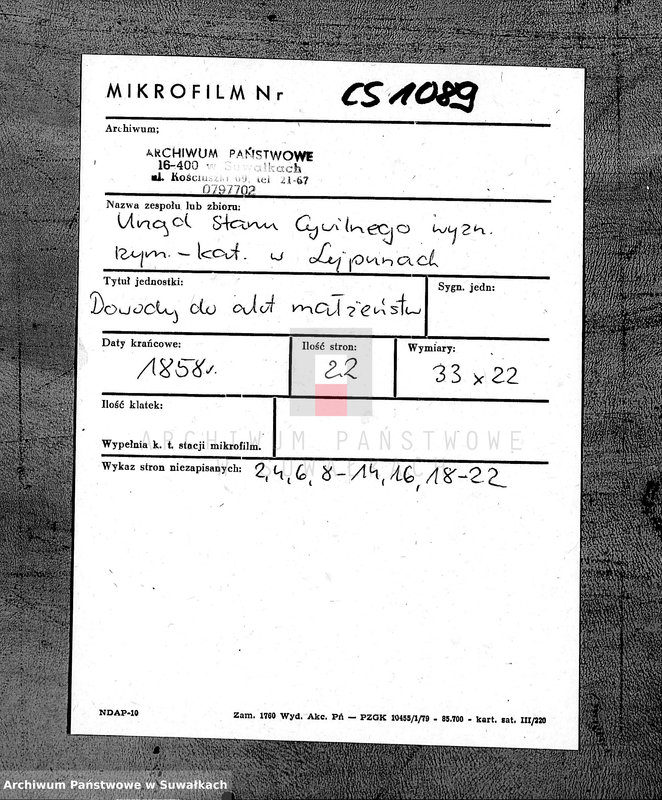 MIKROFILM Nr CS 1089
Archiwum;
ARCHIWUM PAŃSTWOWE
16-400 w Suwałkach
ul. Kościuszki 69, tel 21-67
0797702
Nazwa zespołu lub zbioru:
Urząd Stanu Cywilnego wyzn.
rzym.-kat. w Lejpunach
Tytuł jednostki:
Sygn. jedn:
Dowody do akt małżeństw
Daty krańcowe:
Ilość stron:
Wymiary:
1858r.
22
33 x 22
Ilość klatek:
Wypełnia k. t. stacji mikrofilm.
ARCHIWUM PAŃSTWOWE
W SUWAŁKACH
Wykaz stron niezapisanych: 2,4,6,8-14,16,18-22
NDAP-10
Zam. 1760 Wyd. Akc. Pń — PZGK 10455/1/79 - 85.700 - kart. sat. III/220
Archiwum Państwowe w Suwałkach